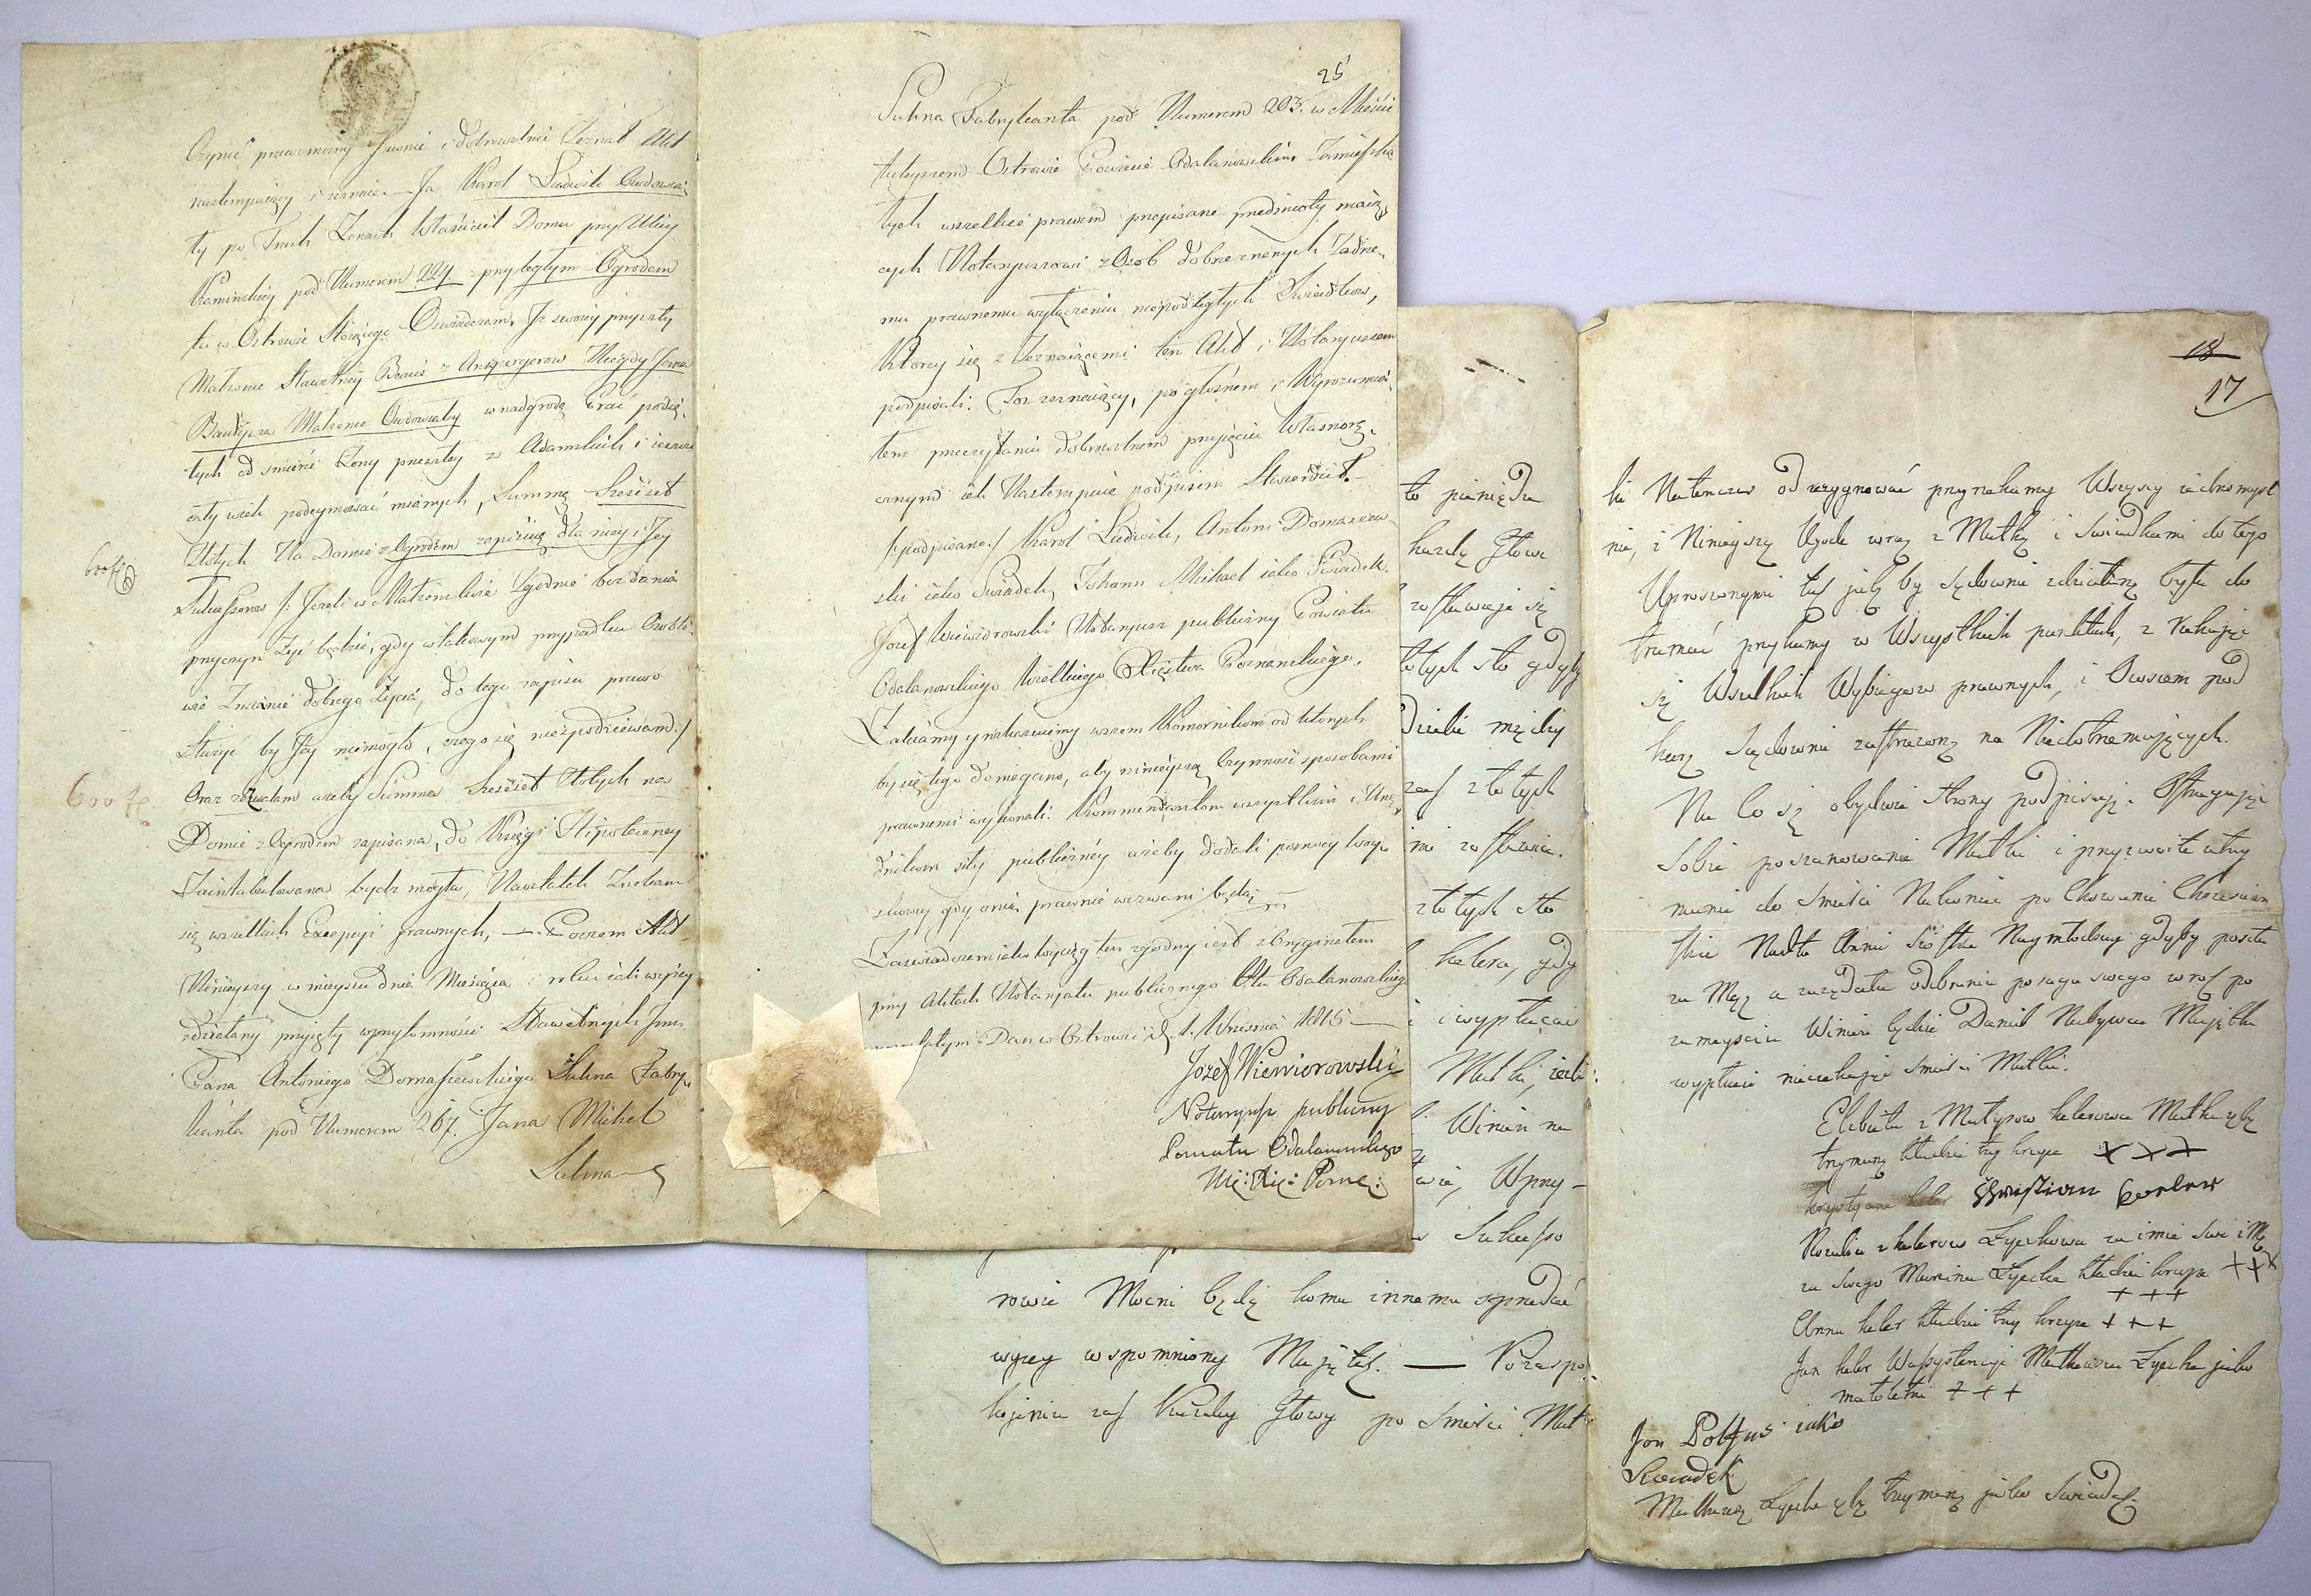 Czynić prawomocny Jawnie i dobrowolnie Zeznał Akt
następuiący i zeznaie. — Ja Karol Ludwik Owdowia„
ły po Trzech Żonach Właściciel Domu przy Ulicy
Kaminskiey pod Numerem 227. przyległym Ogrodem
tu w Ostrowie Stoiącego Oswiadczam, Iż swoiey przyszły
Małżonce Sławetney z Anszpergerow Niegdy Jana
Małżonce Owdowiały w nadgrodę Prac podię„
tych od smierci Żony przeszłey z Adamskich i ieszcze
cały wiek podeymować mianych, Summę Sześćset
Złotych Na Domie z Ogrodem zapisuię dla niey i Jey
Sukcessorow /: Jeżeli w Małżeństwie Zgodnie bez dania
przyczyn Żyć będzie, gdy w takowym przypadku Osobli„
wie Znacznie dobrego Życia, do tego zapisu prawo
Służyć by Jey niemogło, czego się niespodziewam :/
600 fl
Oraz zezwalam ażeby Summa Sześćset Złotych na
600 fl
Domie z Ogrodem zapisana, do Księgi Hipoteczney
Zaintabulowana bydz mogła, Nawzaiem Zrzekam
się wszelkich Excepcyi prawnych, — Poczem Akt
Ninieyszy w mieyscu dniu Miesiąca i roku iak wyżey
zdziałany przyięty w przytomności Sławetnych Jmci
Pana Antoniego Domaszewskiego Sukna Fabry„
kanta pod Numerem 267. Jana Michel
Sukna
25
Sukna Fabrykanta pod Numerem 203. w Mieście
tuteyszem Ostrowie Powiecie Odalanowskim Zamieszka„
łych wszelkie prawem przepisane przedmioty maią„
cych Notaryuszowi z Osob dobrze znanych Żadne„
mu prawnemu wyłączeniu niepodległych Świadkow,
Ktorzy się z Zeznaiącemi ten Akt i Notaryuszem
podpisali. Coż zeznaiący, po głośnem i Wyrozumia„
łem przeczytaniu dobrowolnem przyięciu Własnorę„
cznym ich Następnie podpisem Stwierdził. —
/: podpisano :/ Karol Ludwik, Antoni Domaszew„
ski iako Świadek, Johann Michael iako Świadek.
Jozef Wiewiorowski Notaryusz publiczny Powiatu
Odalanowskiego Wielkiego Xięstwa Poznanskiego.
Zalecamy y nakazuiemy wszem Komornikom od ktorych
by się tego domagano, aby ninieyszą Czynność sposobami
prawnemi wykonali: Kommendantom wszystkim i Urzę„
dnikom siły publiczney ażeby dodali pomocy Woy„
skowey gdy onią prawnie wezwani będą. —
Zaswiadczam iako wyciąg ten zgodny iest z Oryginałem
przy Aktach Notaryatu publicznego Ptu Odalanowskieg
Dan w Ostrowie d. 1. Września 1815 —
Jozef Wiewiorowski
Notaryusz publiczny
Powiatu Odalanowskiego
Wie: Xię: Pozna:
to pieniędza
każdę Głowe
zostawuje się
łotych sto gdyby
Dzieki między
zaś złotych
mi zostawia.
złotych sto
kelera, gdy
i wypłacać
Matki, jeżeli
Winien na
Wprzy –
Sukcesso
rowie Mocni będą komu innemu sprzedać
wyzey wspomniony Majątek. — Po zaspo„
kojeniu zaś Kazdey Głowy po Smierci Mat
18
17
ki Natenczas od rezygnować przyrzekamy Wszyscy jednomysl
nie, i Niniejszą Ugode wraz z Matką i Swiadkami do tego
Uproszonymi tak jak by sądownie zdziałana była do
trzymać przykamy w Wszystkich punktach, z rzekając
się Wszelkich Wybiegow prawnych, i Owszem pod
karą sądownie zastrzezoną na Niedotrzymujących.
Na Co się obydwie Strony podpisują. Ostrzegając
sobie poszanowanie Matki i przyzwoite utrzy
manie do Smierci Nakoniec po Chowanie Chrzesciań
skie Nadto Anna Siostra Naymłodszy gdyby poszła
za Mąz a zarządała odebrania posagu swego w rok po
zamęsciu Winien będzie Daniel Nabywca Majątku
wypłacić nieczekając Smierci Matki.
Elżbieta z Matysow kelerowa Matka rękę
trzymaną kładzie trzy krzyże + + +
krystyan keler Christian Goeler
Rozalia z kelerow Zyechowa za imie swe i Mę
za swego Marcina Zyecha kładzie krzyże + + +
+ + +
Anna keler kładzie trzy krzyże + + +
Jan keler W assystencyi Matheusza Zyecha jako
małoletni + + +
Jon Poltus iako
Swiadek
Matheusz Zyecha rękę trzymaną jako Swiadek.